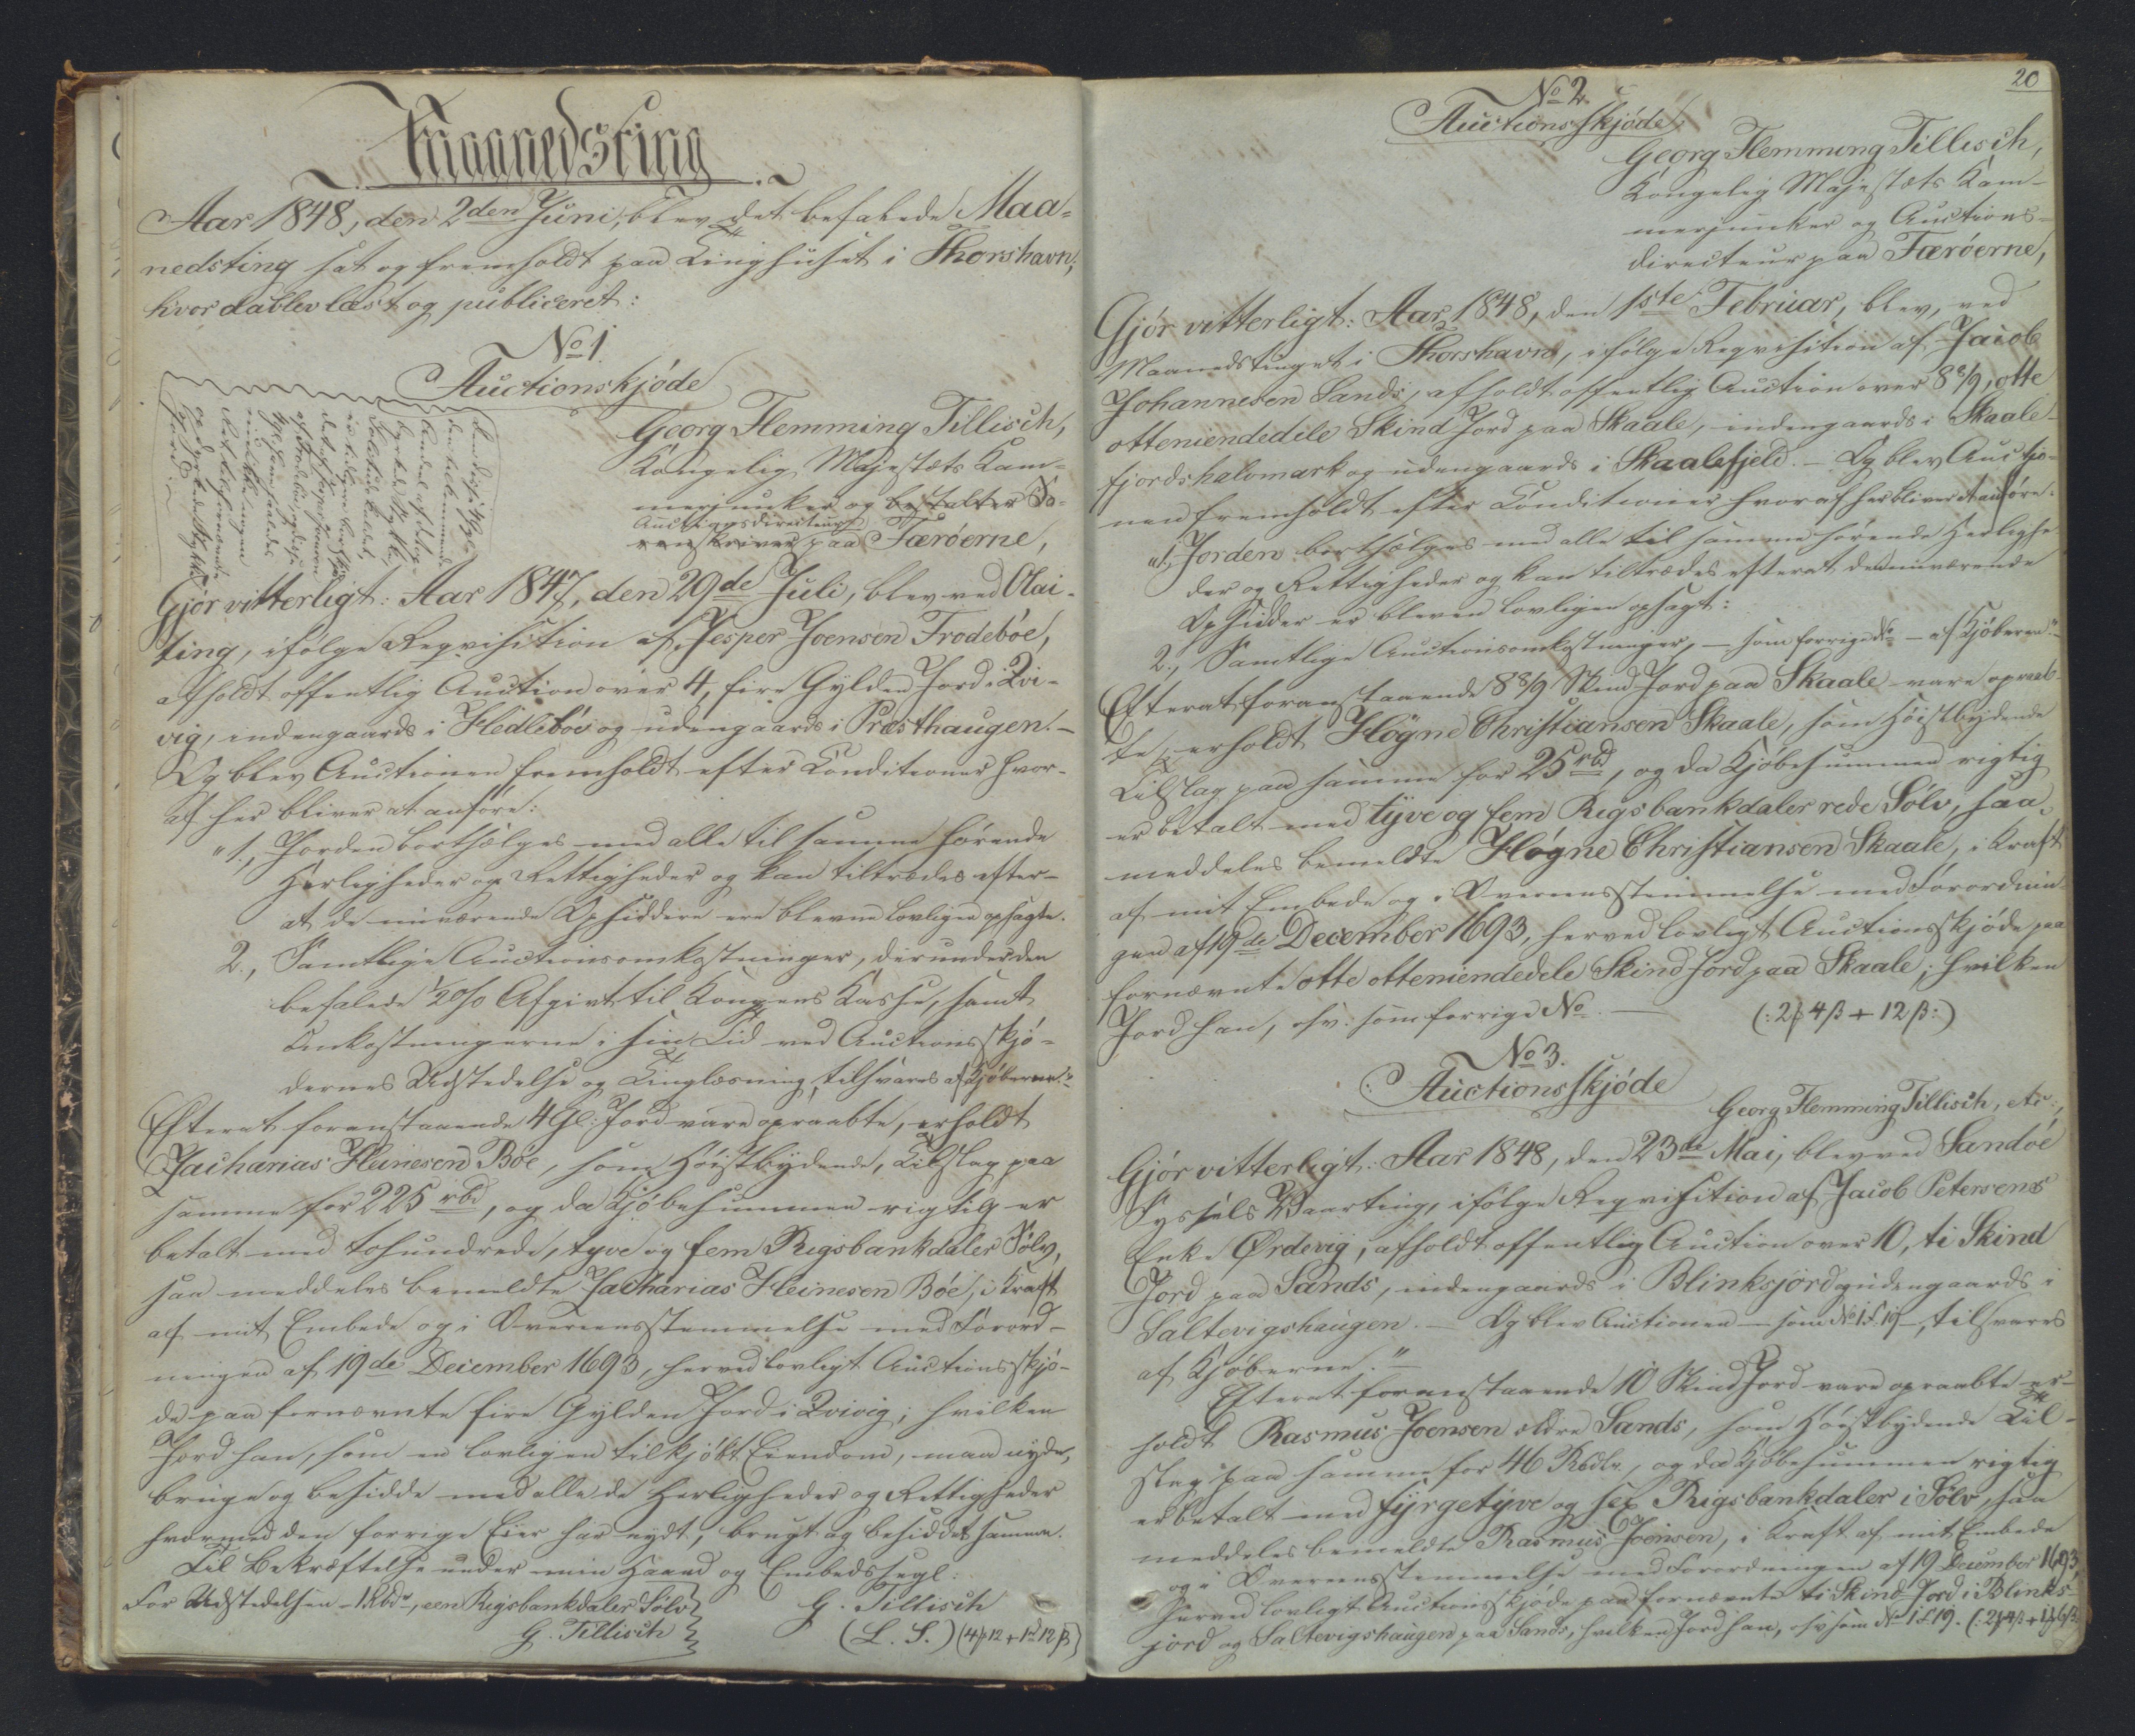 Maanedsting
Aar 1848, den 2den Juni, blev det befalede Maa-
nedsting sat og fremholdt paa Tinghuset i Thorshavn,
hvor da blev læst og publiceret:
No 1.
Auctionskjøde
Georg Flemming Tillisch,
Kongelig Majestæts Kam-
merjunker og bestalter So-
Auctionsdirecteur
renskriver paa Færøerne,
Gjør vitterligt: Aar 1847, den 29de Juli, blev ved Olai-
ting, ifølge Reqvisition af Jesper Joensen Trodebøe,
afholdt offentlig Auction over 4, fire Gylden Jord i Qvi-
vig, indengaards i Hedlebøe og udengaards i Præsthaugen. -
Og blev Auctionen fremholdt efter Conditioner hvor-
af her bliver at anføre:
"1., Jorden bortsælges med alle til samme hørende
Herligheder og Rettigheder og kan tiltrædes efter-
at de nuværende Opsiddere ere blevne lovligen opsagte.
2., Samtlige Auctionsomkostninger, derunder den
befalede 1/2 0/0 Afgivt til Kongens Kasse, samt
Omkostningerne i sin Tid ved Auctionsskjø-
dernes Udstedelse og Tinglæsning, tilsvares af Kjøberne."
Efterat foranstaaende 4 Gl: Jord vare opraabte, erholdt
Zacharias Heinesen Bøe, som Høistbydende, Tilslag paa
samme for 225 rbd, og da Kjøbesummen rigtig er
betalt med tohundrede, tyve og fem Rigsbankdaler Sølv,
saa meddeles bemeldte Zacharias Heinesen Bøe, i Kraft
af mit Embede og i Overeensstemmelse med Forord-
ningen af 19de December 1693, herved lovligt Auctionsskjø-
de paa fornævnte fire Gylden Jord i Qvivig; hvilken
Jord han, som en lovligen tilkjøbt Eiendom, maa nyde,
bruge og besidde med alle de Herligheder og Rettigheder
hvormed den forrige Eier har nydt, brugt og besiddet samme.
Til Bekræftelse under min Haand og Embedssegl:
For Udstedelsen 1 Rbdr, een Rigsbankdaler Sølv
G. Tillisch
G. Tillisch
(L. S.)
20
No 2.
Auctionsskjøde
Georg Flemming Tillisch,
Kongelig Majestæts Kam-
merjunker og Auctions-
directeur paa Færøerne,
Gjør vitterligt: Aar 1848, den 1ste Februar, blev, ved
Maanedstinget i Thorshavn, ifølge Reqvisition af Jacob
Johannesen Sands, afholdt offentlig Auction over 8 8/9, otte
otteniendedele Skind Jord paa Skaale, indengaards i Skaale-
fjordshalvmark og udengaards i Skaalefjeld. - Og blev Auctio-
nen fremholdt efter Conditioner hvoraf her bliver at anføre:
"1., Jorden bortsælges med alle til samme hørende Herlighe-
der og Rettigheder og kan tiltrædes efterat den nuværende
Opsidder er bleven lovligen opsagt:
2., Samtlige Auctionsomkostninger, - som forrige No - af Kjøberen."
Efterat foranstaaende 8 8/9 Skind Jord paa Skaale vare opraab-
te, erholdt Høgne Christiansen Skaale, som Høistbydende
Tilslag paa samme for 25 rbd, og da Kjøbesummen rigtig
er betalt med tyve og fem Rigsbankdaler rede Sølv, saa
meddeles bemeldte Høgne Christiansen Skaale, i Kraft
af mit Embede og i Overeensstemmelse med Forordnin-
gen af 19de December 1693, herved lovligt Auctionsskjøde paa
fornævnte otte otteniendedele Skind Jord paa Skaale; hvilken
Jord han, osv. som forrige No. -
(: 2 ß 4 β + 12 β :)
No 3.
Auctionsskjøde
Georg Flemming Tillisch, etc:,
Gjør vitterligt: Aar 1848, den 23de Mai, blev ved Sandøe
Syssels Vaarting, ifølge Reqvisition af Jacob Petersens
Enke Ørdevig, afholdt offentlig Auction over 10, ti Skind
Jord paa Sands, indengaards i Blinksjord og udengaards i
Saltevigshaugen. - Og blev Auctionen - som No 1 F. 19 -, tilsvares
af Kjøberne."
Efterat foranstaaende 10 Skind Jord vare opraabte er-
holdt Rasmus Joensen ældre Sands, som Høistbydende Til-
slag paa samme for 46 Rbdlr., og da Kjøbesummen rigtig
er betalt med fyrgetyve og sex Rigsbankdaler i Sølv, saa
meddeles bemeldte Rasmus Joensen, i Kraft af mit Embede
og i Overeensstemmelse med Forordningen af 19 December 1693,
herved lovligt Auctionsskjøde paa fornævnte ti Skind Jord i Blinks-
jord og Saltevigshaugen paa Sands, hvilken Jord han, osv som No 1 F 19.